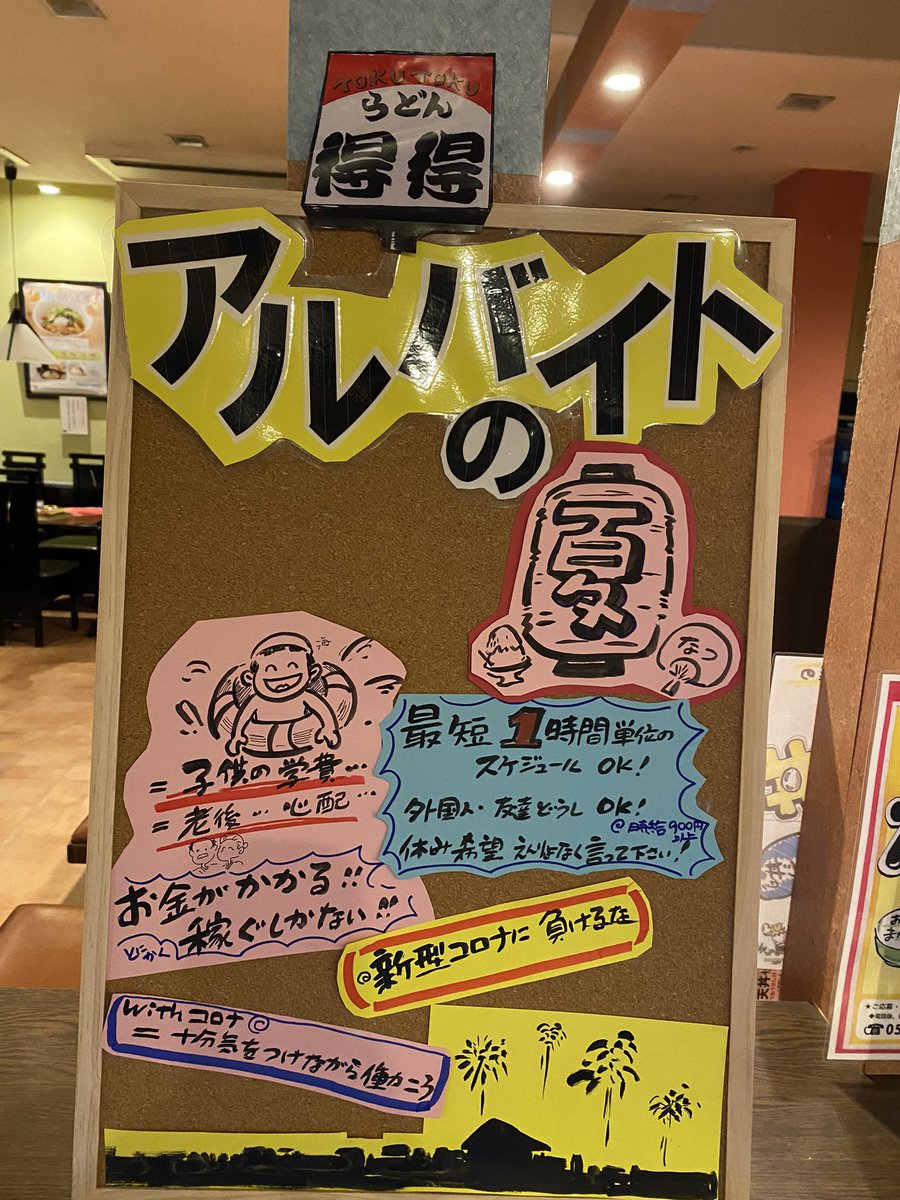 TOKU TOKU
うどん
得得
アルバイト
の
夏
なつ
海
= 子供の学費…
= 老後… 心配…
お金がかかる!!
とにかく 稼ぐしかない!!
最短1時間単位の
スケジュール OK!
外国人・友達どうし OK!
@時給900円以上
休み希望 えんりょなく言って下さい!
@新型コロナに 負けるな
Withコロナ@
= 十分気をつけながら働こう
天丼
★ご応募・
☎05